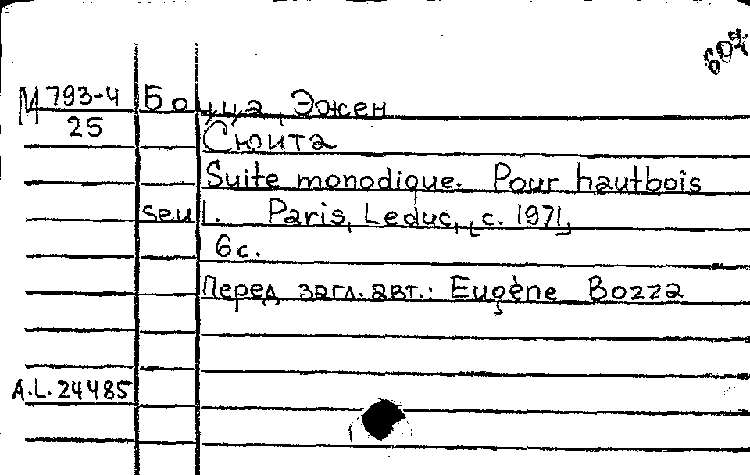 607
М 793-4 Боцца, Эжен
25 Сюита
Suite monodique. Pour hautbois
seul. Paris, Leduc, [c. 1971]
6 с.
Перед загл. авт.: Eugène Bozza
A.L. 24485